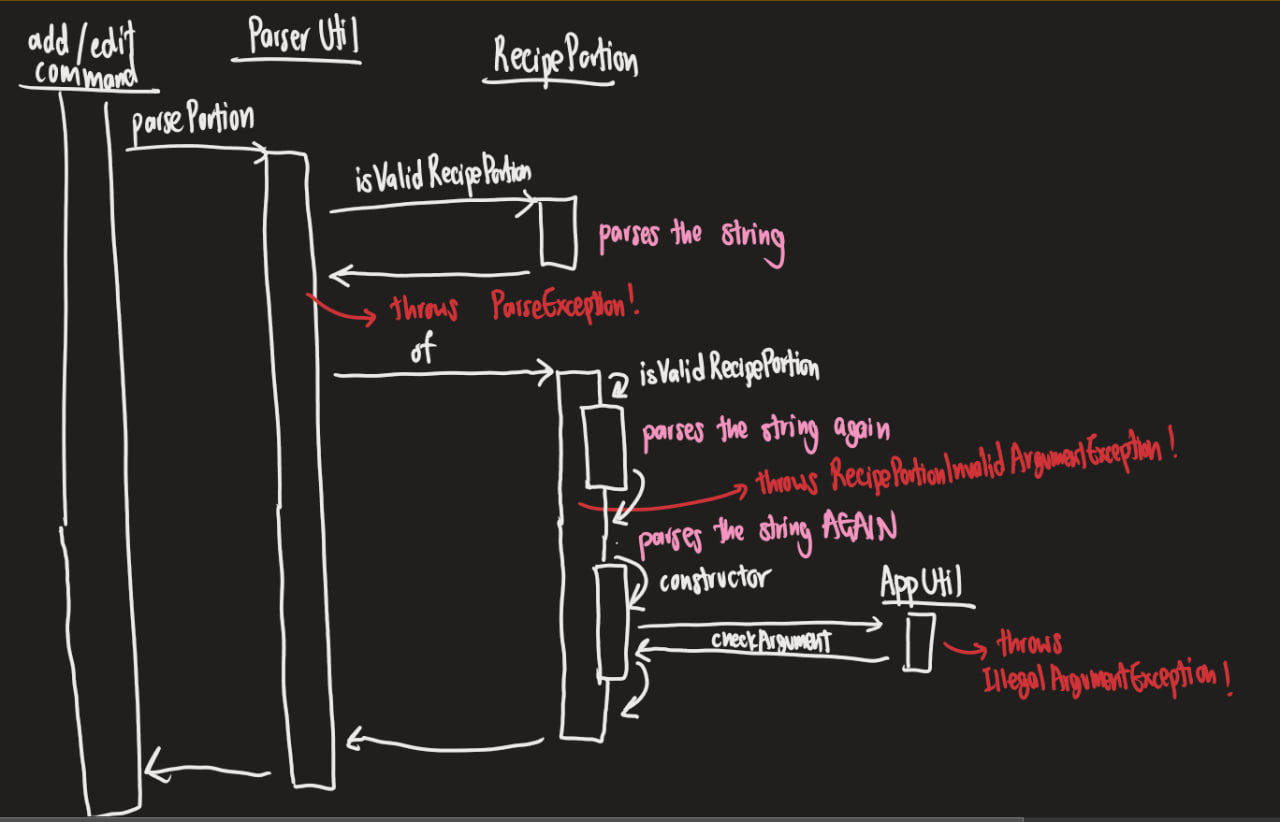 add/edit
command
Parser Util
RecipePortion
parsePortion
isValidRecipePortion
parses the string
throws ParseException!
of
isValidRecipePortion
parses the string again
throws RecipePortionInvalidArgumentException!
parses the string AGAIN
constructor
AppUtil
checkArgument
throws
IllegalArgumentException!